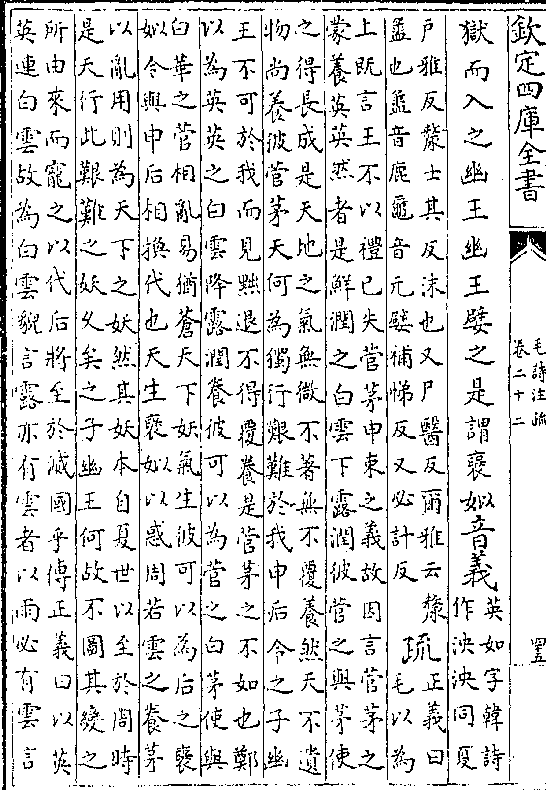 欽定四庫全書
毛詩注疏
卷二十二
獄而入之幽王幽王嬖之是謂襃姒音義
英如字韓詩
作泱泱同夏
户雅反漦士其反沫也又尸醫反爾雅云漦
盝也盝音鹿黿音元嬖補悌反又必計反
疏
正義曰
毛以為
上既言王不以禮已失菅茅申束之義故因言菅茅之
蒙養英英然者是鮮潤之白雲下露潤彼菅之與茅使
之得長成是天地之氣無微不著無不覆養然天不遺
物尚養彼菅茅天何為獨行艱難於我申后令之子幽
王不可於我而見黜退不得覆養是菅茅之不如也鄭
以為英英之白雲降露潤養彼可以為菅之白茅使與
白華之菅相亂易猶蒼天下妖氣生彼可以為后之襃
姒令與申后相換代也天生襃姒以惑周若雲之養茅
以亂用則為天下之妖然其妖本自夏世以至於周時
是天行此艱難之妖久矣之子幽王何故不圖其變之
所由來而寵之以代后將至於滅國乎傳正義曰以英
英連白雲故為白雲貌言露亦有雲者以雨必有雲言